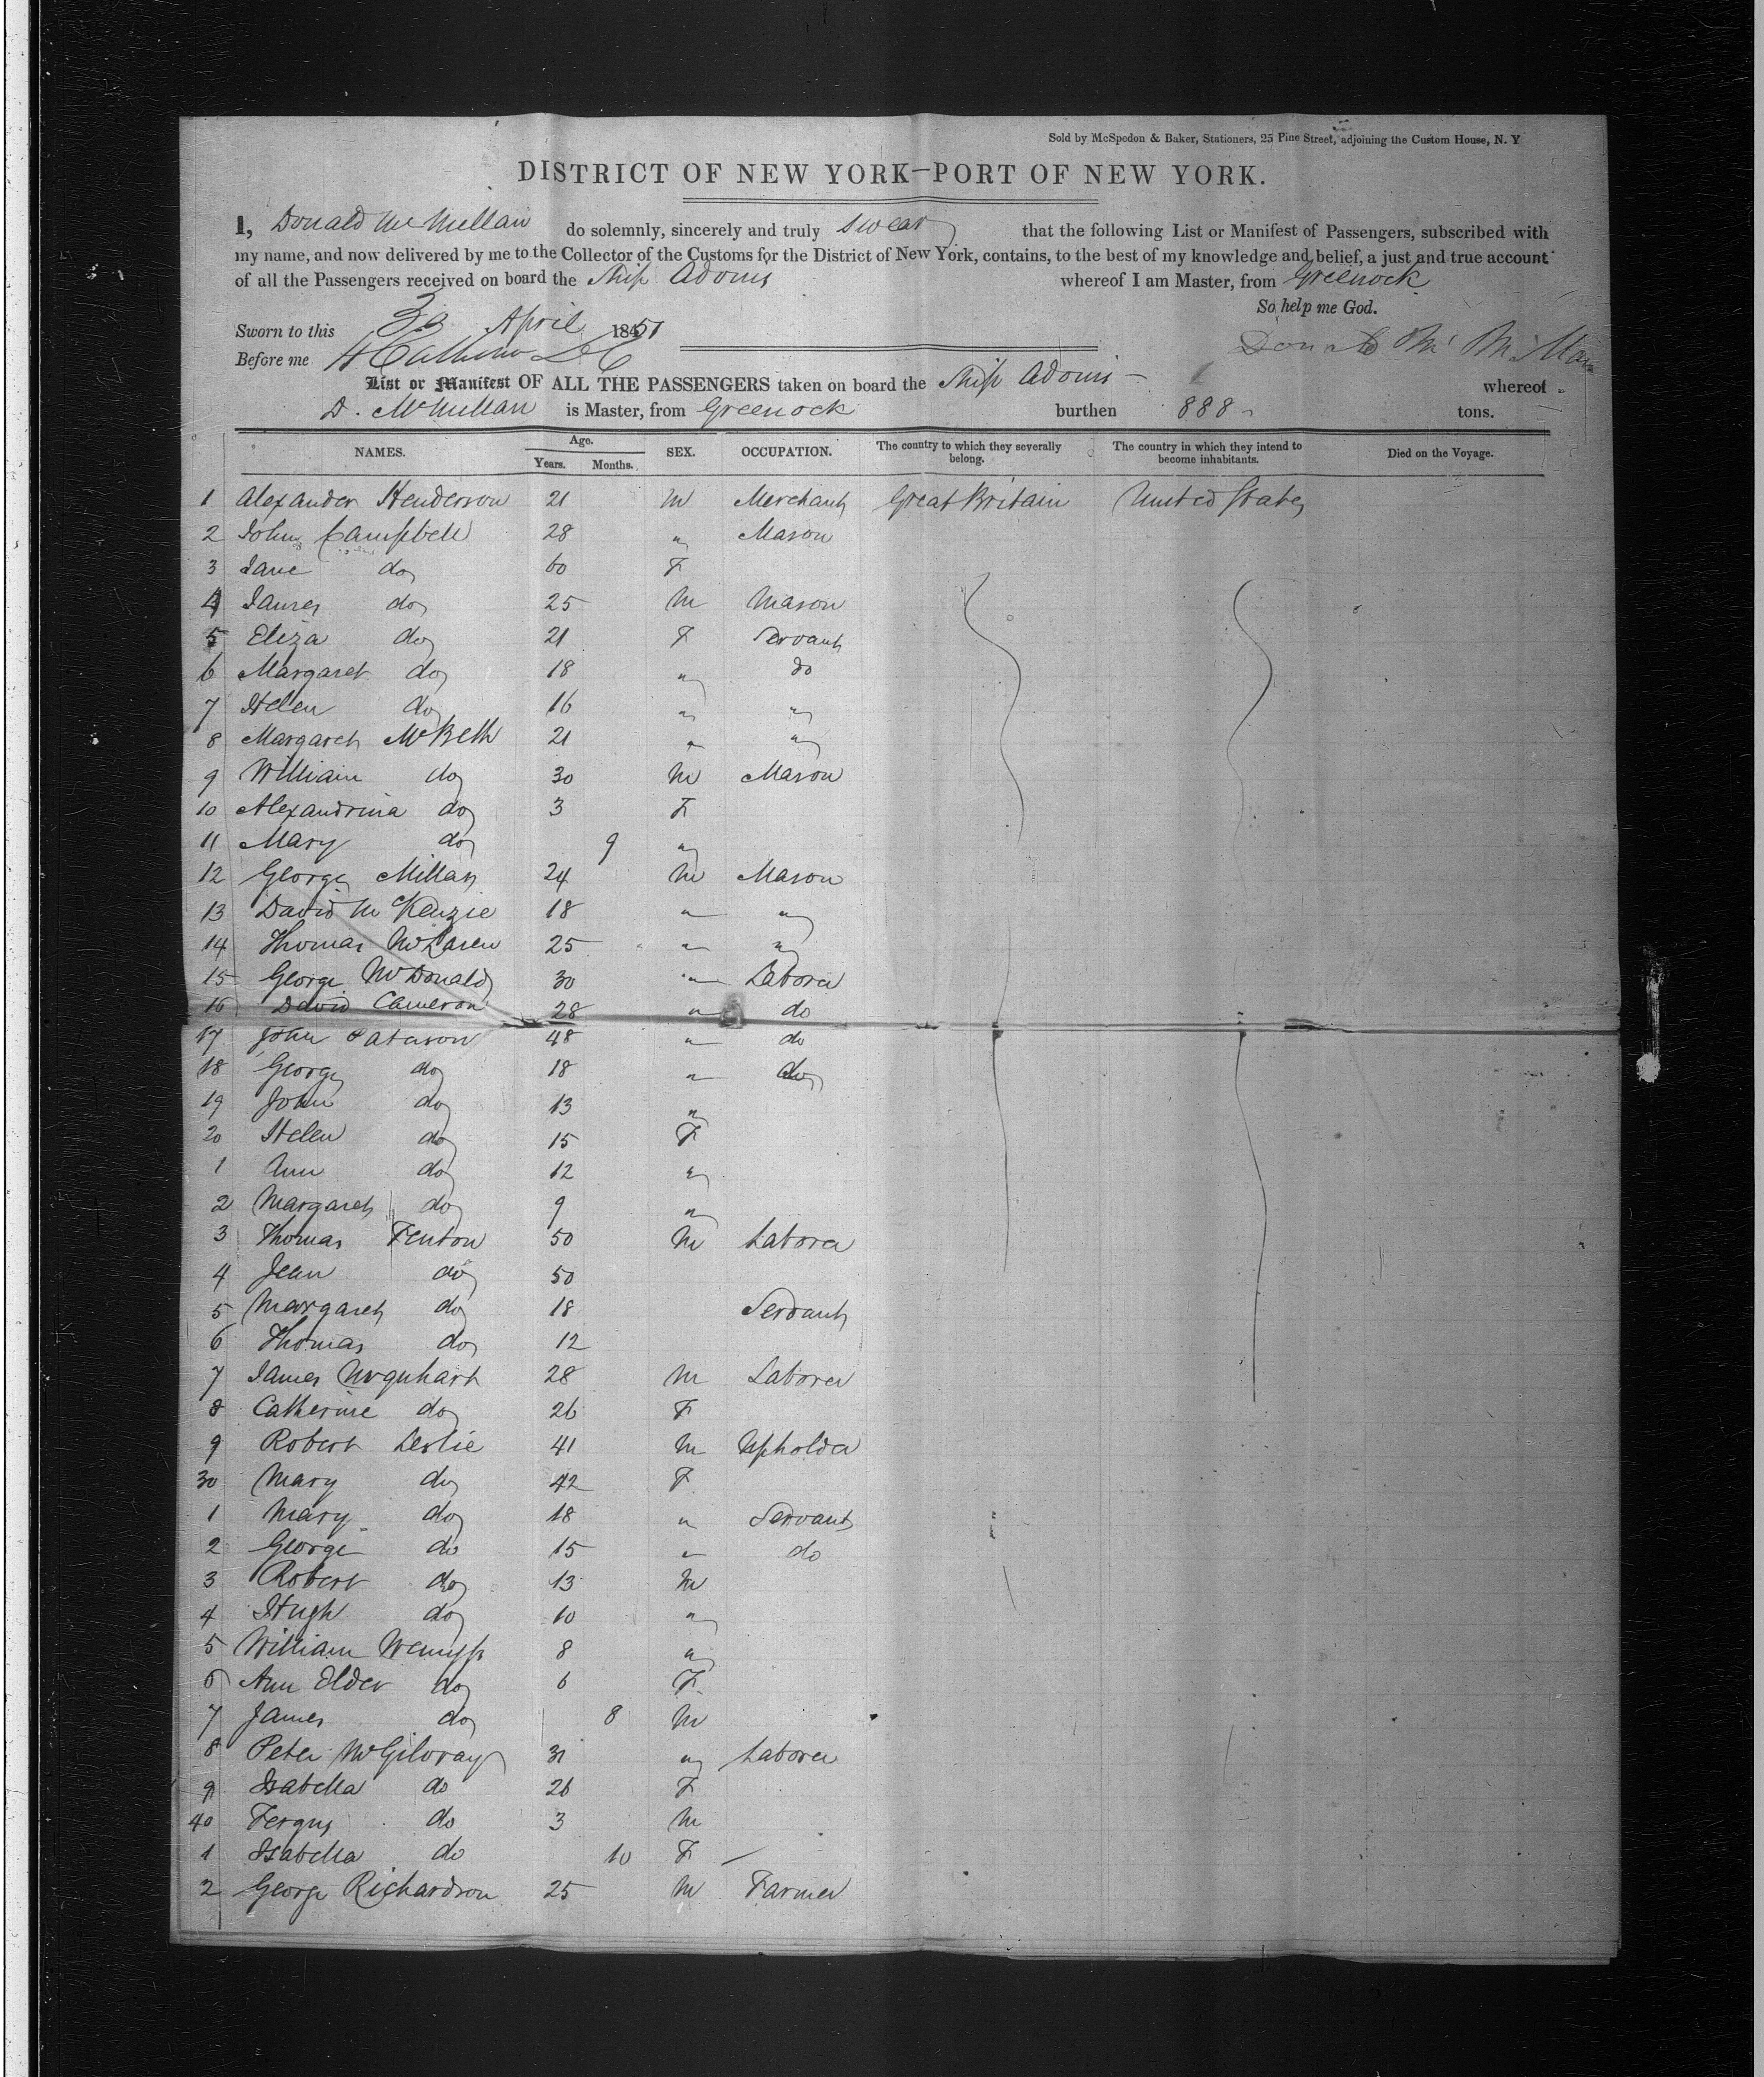 Sold by McSpedon & Baker, Stationers, 25 Pine Street, adjoining the Custom House, N. Y
DISTRICT OF NEW YORK—PORT OF NEW YORK.
I, Donald McMillan do solemnly, sincerely and truly swear that the following List or Manifest of Passengers, subscribed with
my name, and now delivered by me to the Collector of the Customs for the District of New York, contains, to the best of my knowledge and belief, a just and true account
of all the Passengers received on board the Ship Adonis whereof I am Master, from Greenock
So help me God.
Sworn to this April 1851
Before me
Donald Mc Millan
List or Manifest OF ALL THE PASSENGERS taken on board the Ship Adonis — whereof
D. McMillan is Master, from Greenock burthen 888 tons.
NAMES. Age. Years. Months. SEX. OCCUPATION. The country to which they severally belong. The country in which they intend to become inhabitants. Died on the Voyage.
1 Alexander Henderson 21 M Merchant Great Britain United States
2 John Campbell 28 " Mason
3 Jane do 60 F
4 James do 25 M Mason
5 Eliza do 21 F Servant
6 Margaret do 18 " do
7 Helen do 16 " "
8 Margaret McBeth 21 " "
9 William do 30 M Mason
10 Alexandrina do 3 F
11 Mary do 9 "
12 George Millar 24 M Mason
13 David McKenzie 18 " "
14 Thomas McLaren 25 " "
15 George McDonald 30 " Laborer
16 David Cameron 28 " do
17 John Paterson 48 " do
18 George do 18 " do
19 John do 13 "
20 Helen do 15 F
1 Ann do 12 "
2 Margaret do 9 "
3 Thomas Fenton 50 M Laborer
4 Jean do 50
5 Margaret do 18 Servant
6 Thomas do 12
7 James Urquhart 28 M Laborer
8 Catherine do 26 F
9 Robert Leslie 41 M Upholder
30 Mary do 42 F
1 Mary do 18 " Servant
2 George do 15 " do
3 Robert do 13 M
4 Hugh do 10 "
5 William Wemyss 8 "
6 Ann Elder do 6 F
7 James do 8 M
8 Peter McGilvray 31 " Laborer
9 Isabella do 26 F
40 Fergus do 3 M
1 Isabella do 10 F
2 George Richardson 25 M Farmer